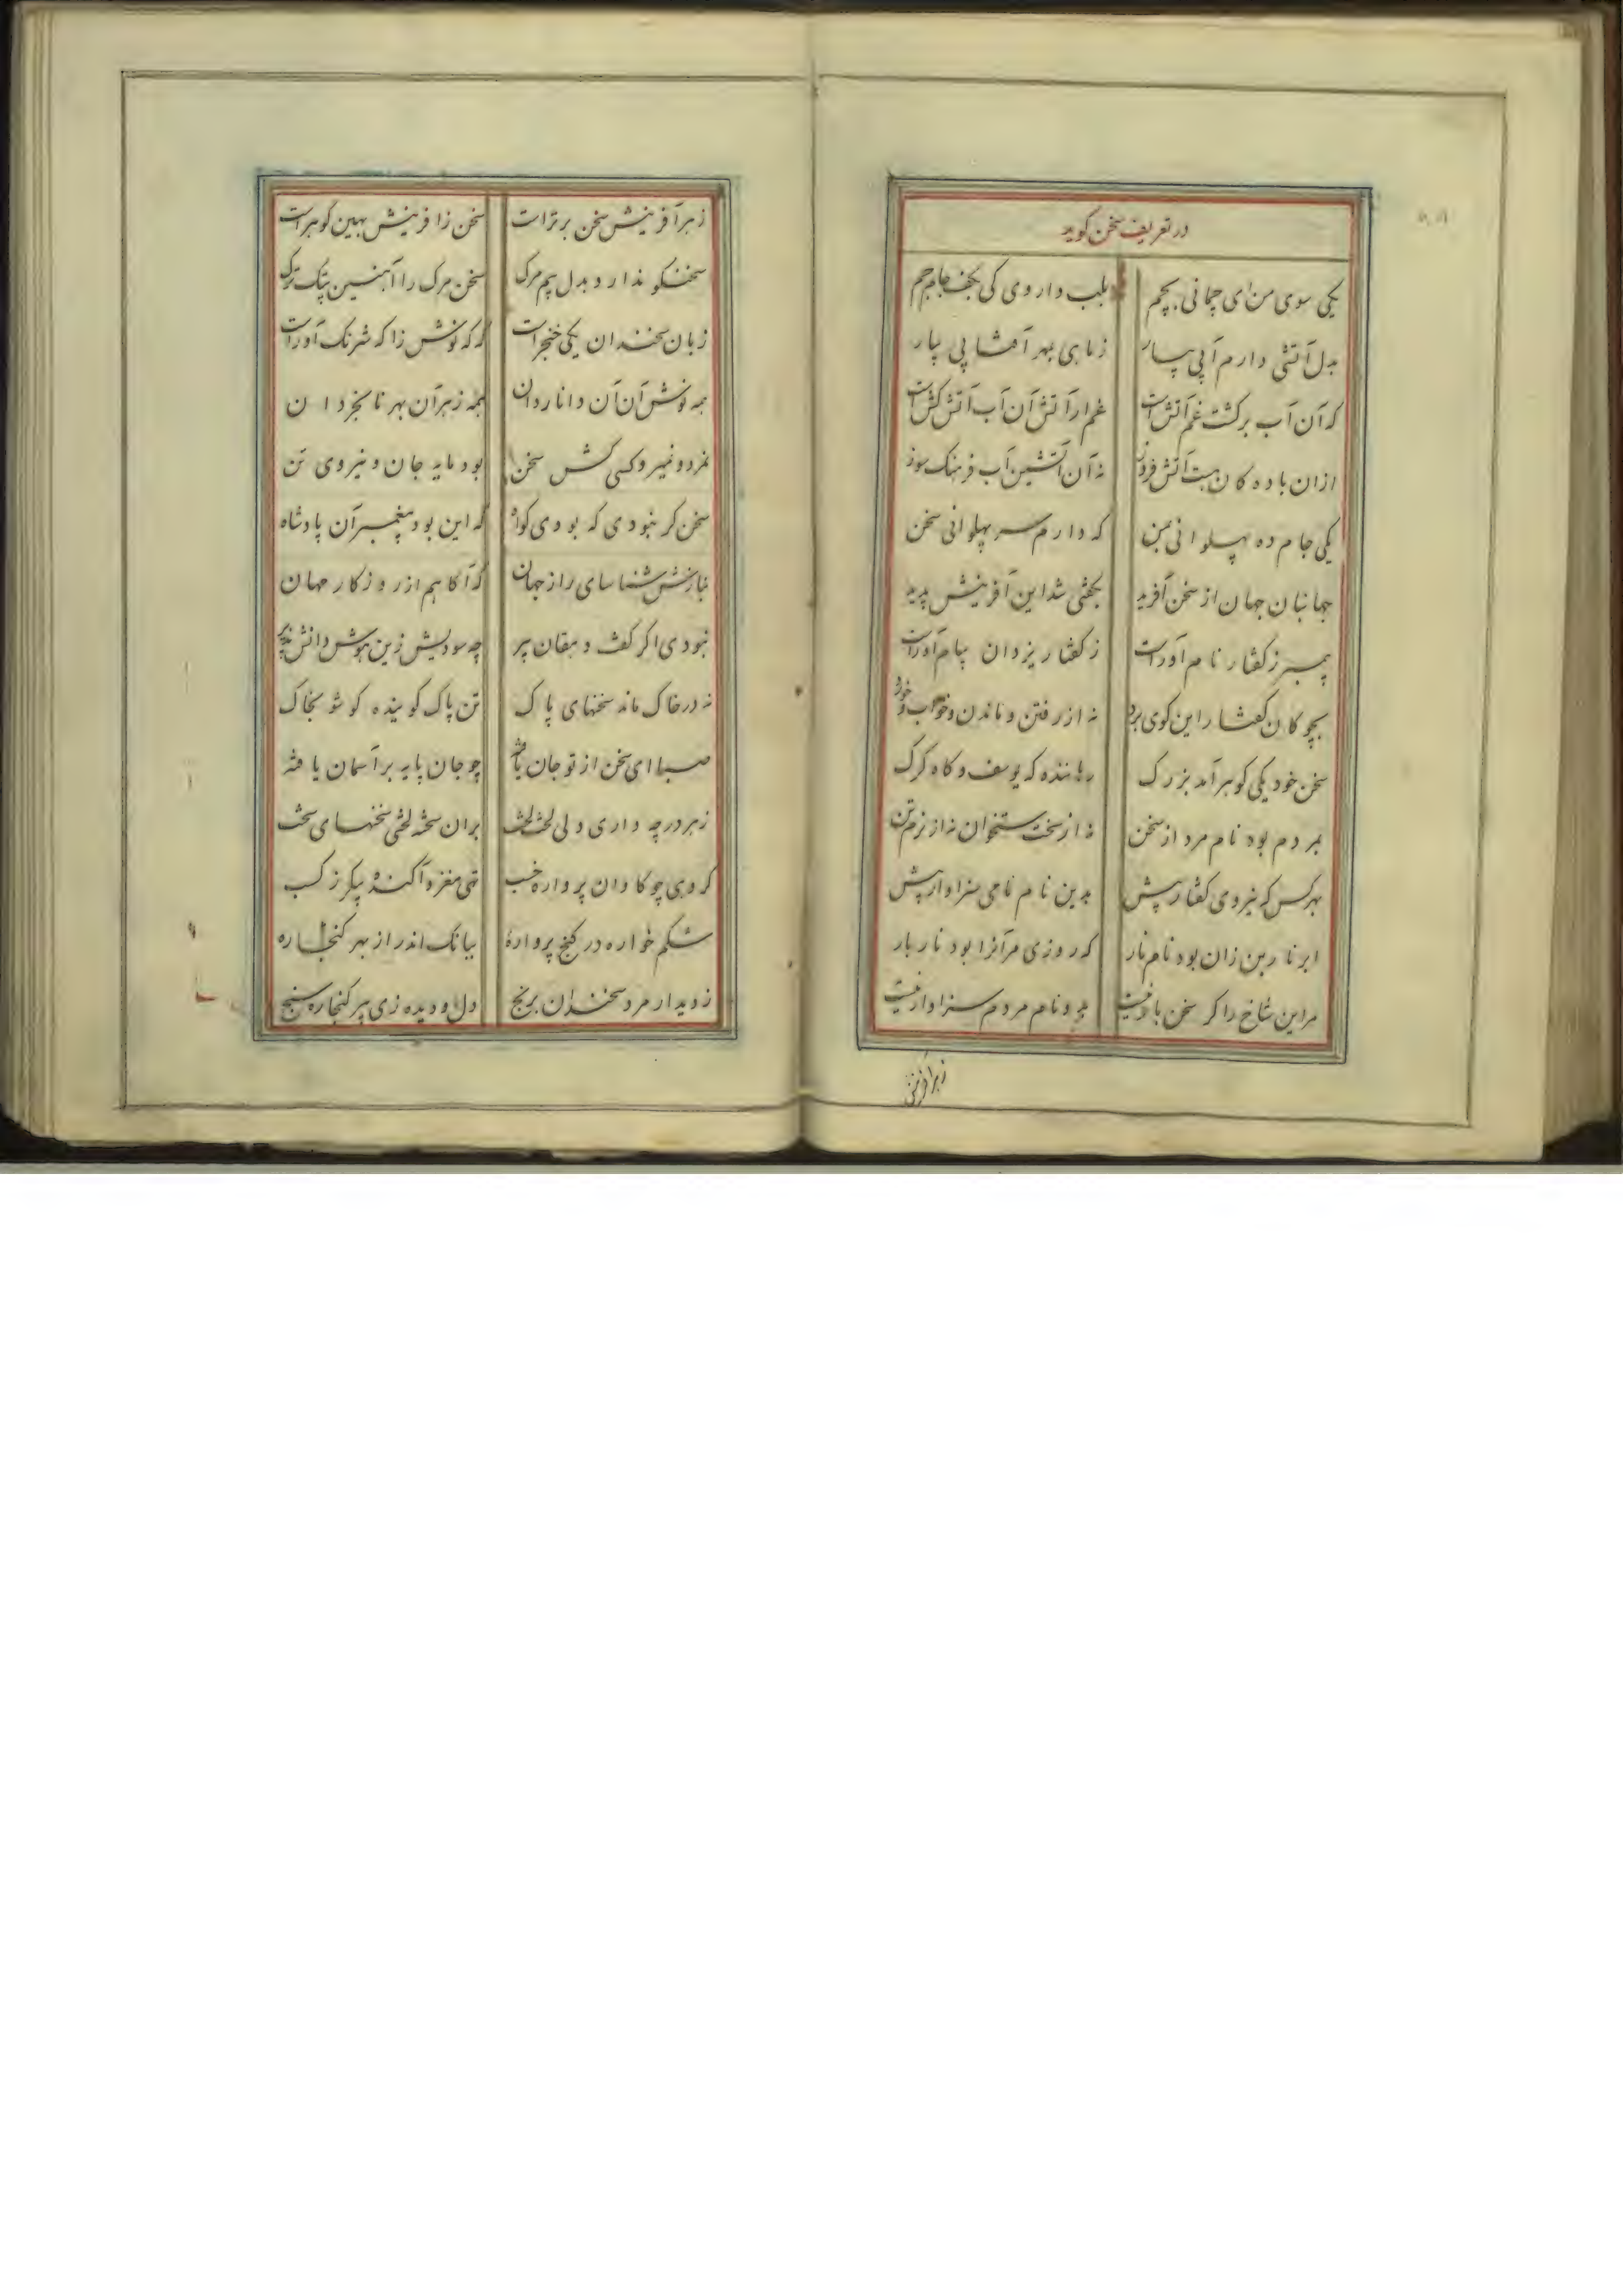 در تعریف سخن گوید
یکی سوی من ای چمانی بچم بلب داروی کی بکف جام جم
بدل آتشی دارم آبی بیار ز ماهی بهر آفتابی بیار
که آن آب بر کشت غم آتش است غم ار آتش آن آب آتش کش است
از ان باده کان هست آتش فروز نه آن آتشین آب فرهنگ سوز
یکی جام ده پهلوانی بمن که دارم سر پهلوانی سخن
جهانبان جهان از سخن آفرید بحثی شد این آفرینش پدید
پیمبر ز کفتار نام آور است ز کفتار یزدان پیام آور است
بچوکان کفتار این کوی برد نه از رفتن و ماندن و خواب و خورد
سخن خود یکی کوهر آمد بزرک رهاننده که یوسف و کاه کرک
بمردم بود نام مرد از سخن نه از سخت ستخوان نه از نرم تن
بهر کس که نیروی کفتار بیش بدین نام نامی سزاوار بیش
ابر نار بن زان بود نام نار که روزی مر آنرا بود نار بار
مر این شاخ را کر سخن بار نیست بدو نام مردم سزاوار نیست
زبر آفرینش
زهر آفرینش سخن برتر است سخن زافرینش بهین کوهر است
سخنکو ندارد بدل بیم مرک سخن مرک را آهنین پتک ترک
زبان سخندان یکی خنجر است که که نوش زا که شرنک آور است
همه نوش آن آن دانا ردان همه زهر آن بهر نابخردان
نمرد و نمیرد کسی کش سخن بود مایه جان و نیروی تن
سخن کر نبودی که بودی کواه که این بود پیغمبر آن پادشاه
نیازش شناسای راز جهان که آکاهم از روزکار جهان
نبودی اکر کفت دهقان پیر چه سودیش زین هوش دانش پذیر
نه در خاک ماند سخنهای پاک تن پاک کوینده کو شو بخاک
صبا ای سخن از تو جان یافته چو جان پایه بر آسمان یافته
ز هر در چه داری ولی لخت لخت بران سخته لختی سخنهای سخت
کروهی چو کاوان پرواره خسب تهی مغز و آکنده پیکر ز کسب
شکم خواره در کنج پرواره ببانک اندر از بهر کنجاره
ز دیدار مرد سخندان برنج دل و دیده زی پیر کنجاره سنج